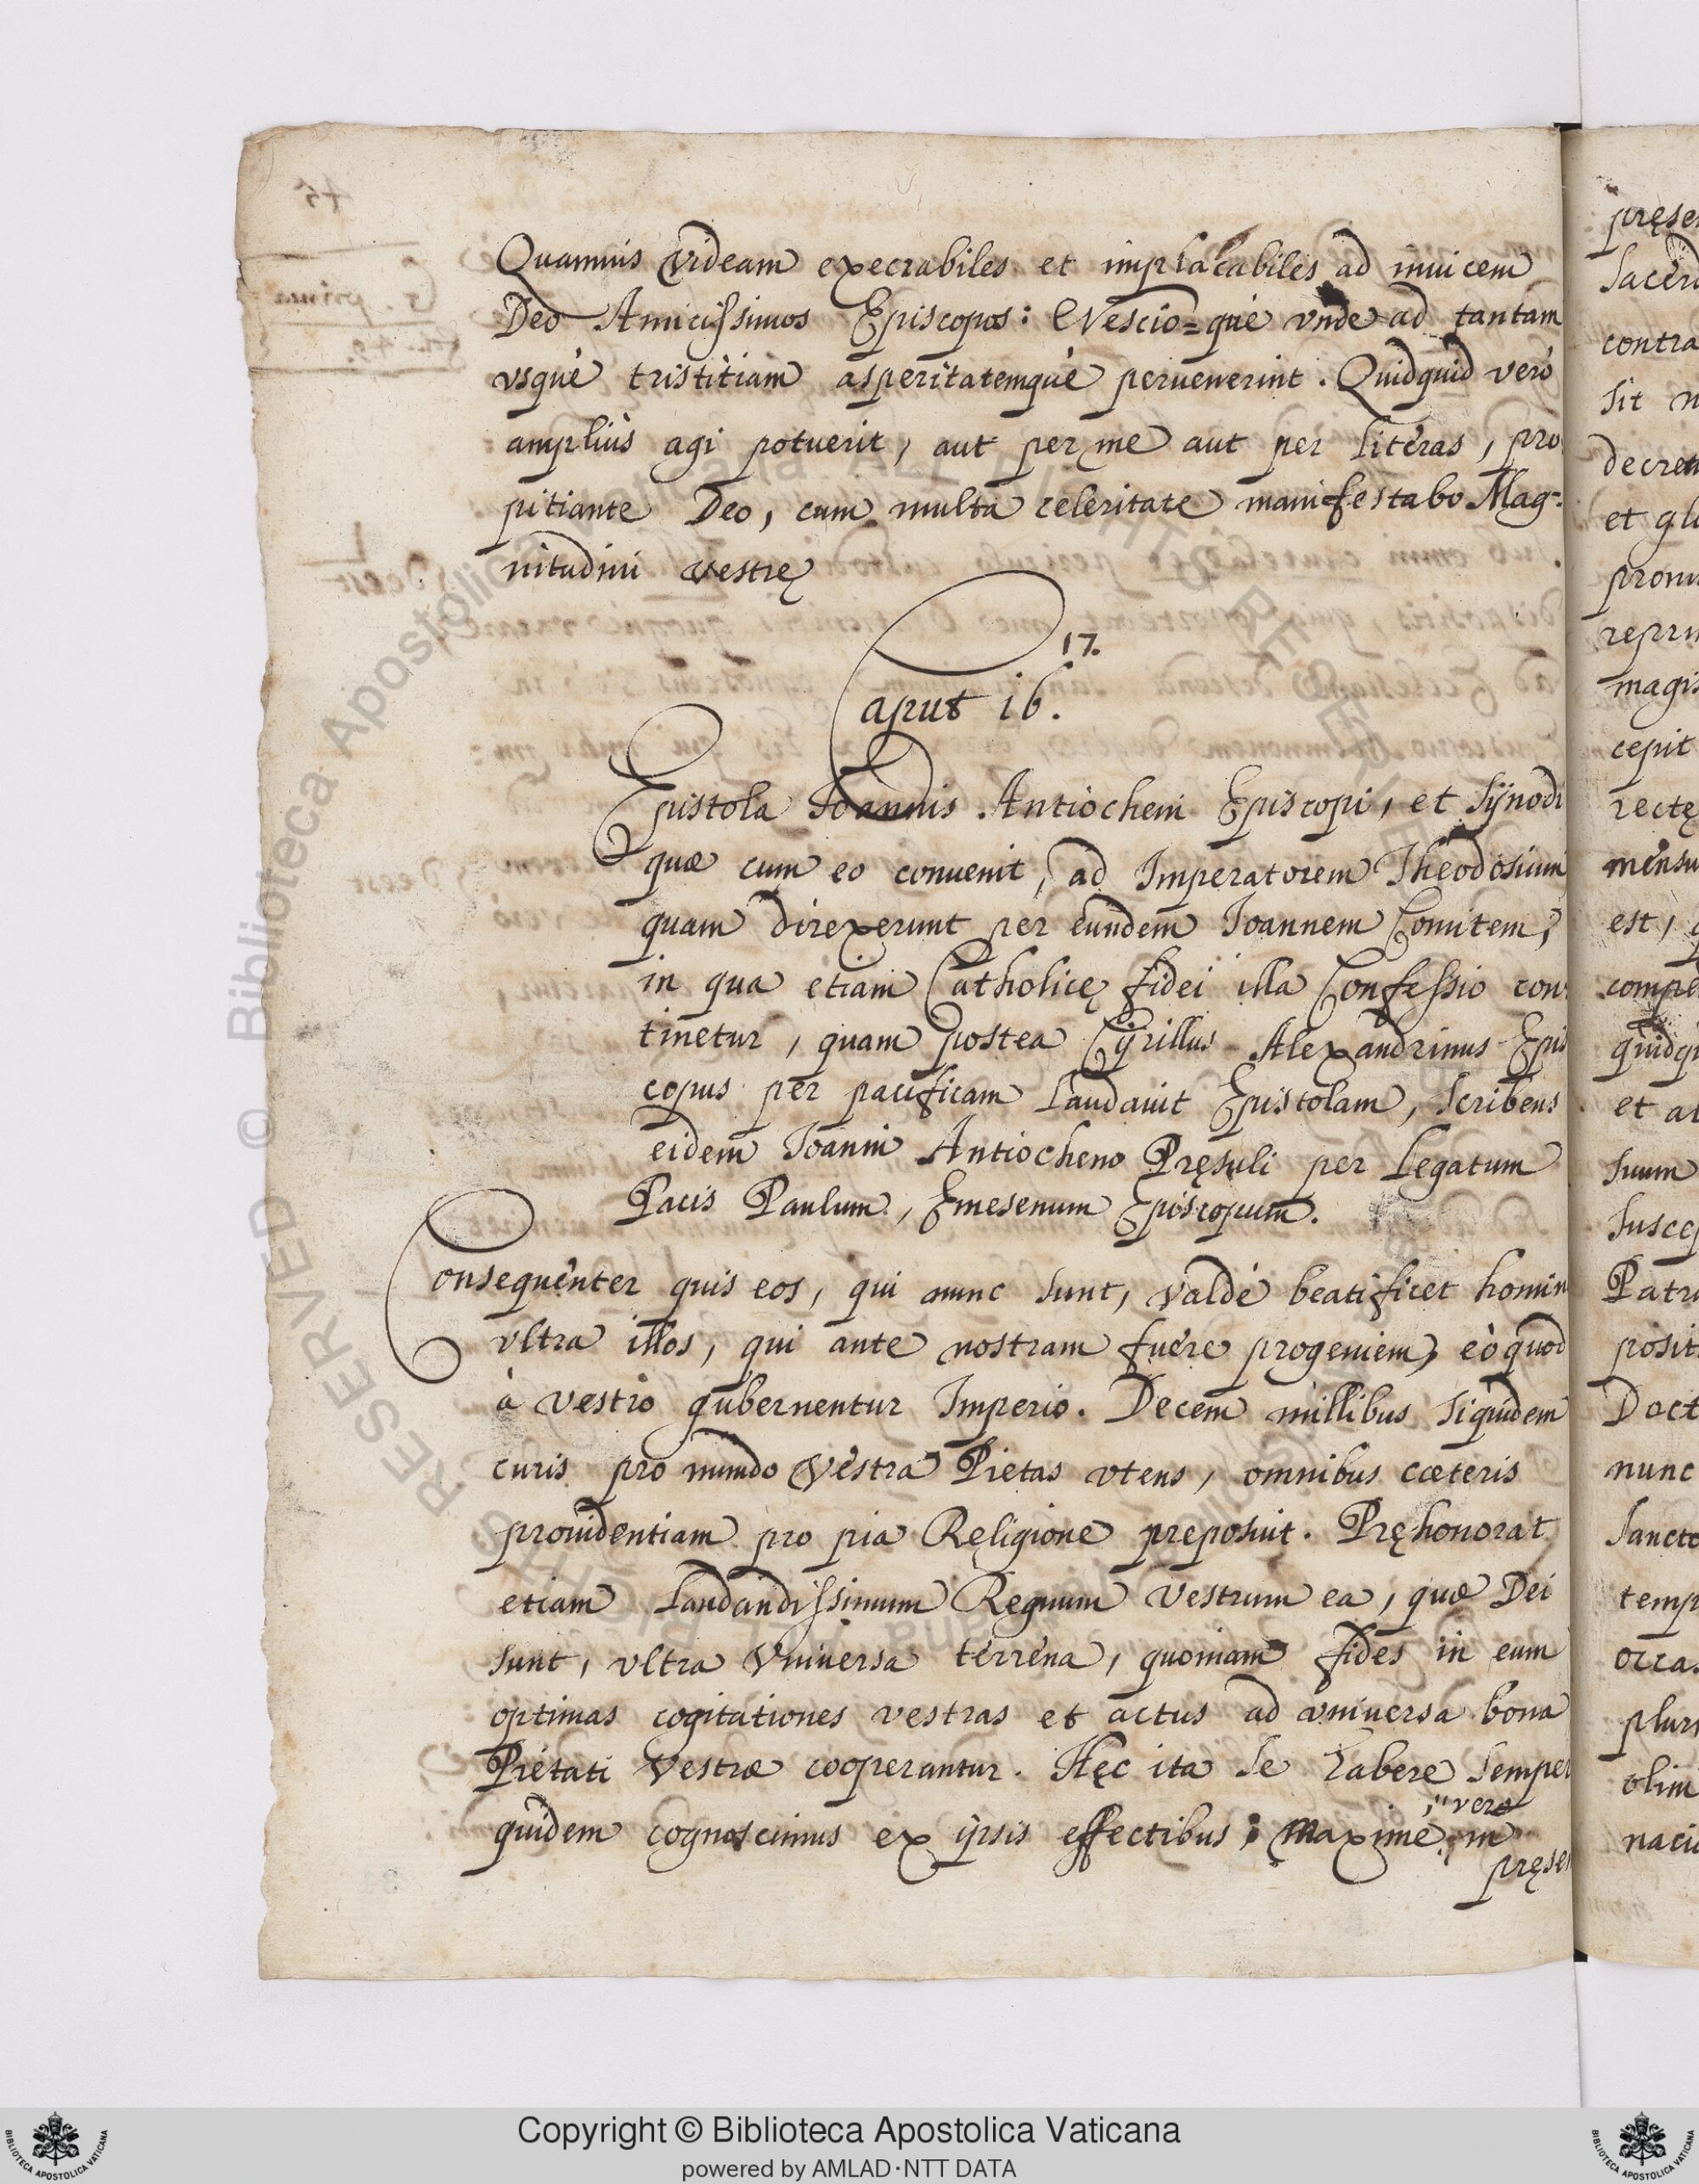 Quamuis videam execrabiles et implacabiles ad inuicem
Deo Amicissimos Episcopos: Nescio=que vnde ad tantam
vsquè tristitiam asperitatemquè peruenerint. Quidquid verò
ampliùs agi potuerit, aut per me aut per literas, pro
pitiante Deo, cum multa celeritate manifestabo Mag=
nitudini vestrę
17.
Caput 16.
Epistola Ioannis Antiocheni Episcopi, et Sÿnodi
quæ cum eo conuenit, ad Imperatorem Theodosium
quam direxerunt per eundem Ioannem Comitem,
in qua etiam Catholicę fidei illa Confessio con
tinetur, quam postea Cÿrillus Alexandrinus Epis
copus per pacificam Laudauit Epistolam, scribens
eidem Ioanni Antiocheno Pręsuli per Legatum
Pacis Paulum, Emesenum Episcopum.
Consequenter quis eos, qui nunc sunt, valdè beatificet homin
vltra illos, qui ante nostram fuere progeniem, eò quod
à vestro gubernentur Imperio. Decem millibus siquidem
curis pro mundo vestra Pietas vtens, omnibus cœteris
prouidentiam pro pia Religione preposuit. Pręhonorat
etiam Laudandissimum Regnum vestrum ea, quæ Dei
sunt, vltra vniuersa terrena, quoniam fides in eum
optimas cogitationes vestras et actus ad vniuersa bona
Pietati vestræ cooperantur. Hęc ita se habere semper
quidem cognoscimus ex ÿpsis effectibus; maximè in
vero
pręse
pręse
sacerd
contra
sit n
decret
et glo
pronu
repri
magis
cepit
rectę
mensu
est,
compe
quidqu
et at
suum
suscep
Patru
posit
Doct
nunc
sancto
temp
occa
plur
olim
naciu
© Biblioteca Apostolica Vaticana ALL RIGHTS RESERVED
Copyright © Biblioteca Apostolica Vaticana
powered by AMLAD·NTT DATA
BIBLIOTECA APOSTOLICA VATICANA
BIBLIOTECA APOSTOLICA VATICANA